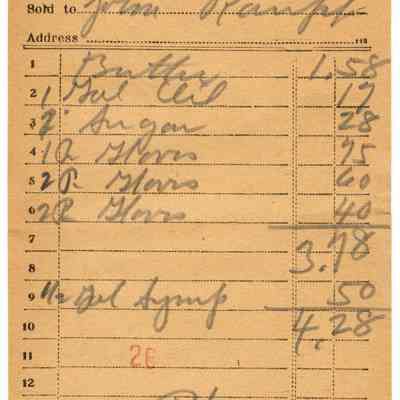 Sold to John
Address
1 Butter 1.58
2 1 Gal Oil 17
3 Sugar 28
4 1 P. Hovrs 75
5 2 P. Hovrs 60
6 2 P Hovrs 40
7 3.78
8
9 1/2 Gal Syrup 50
10 4.28
11 26
12